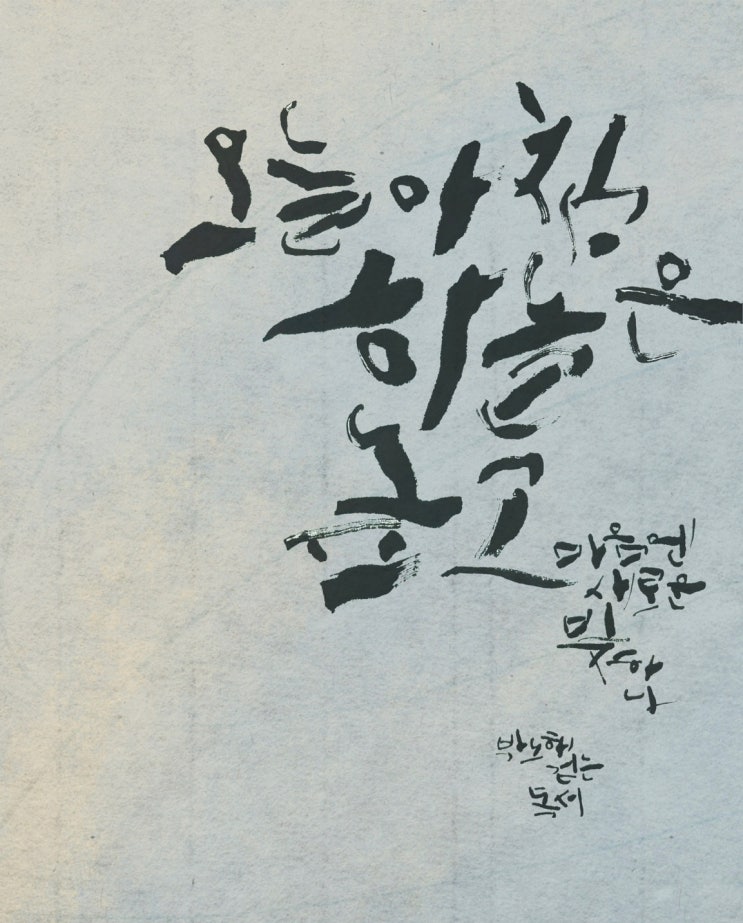 오늘 아침
하늘은
높고
마음엔
새로운
빛 하나
박노해
걷는
독서